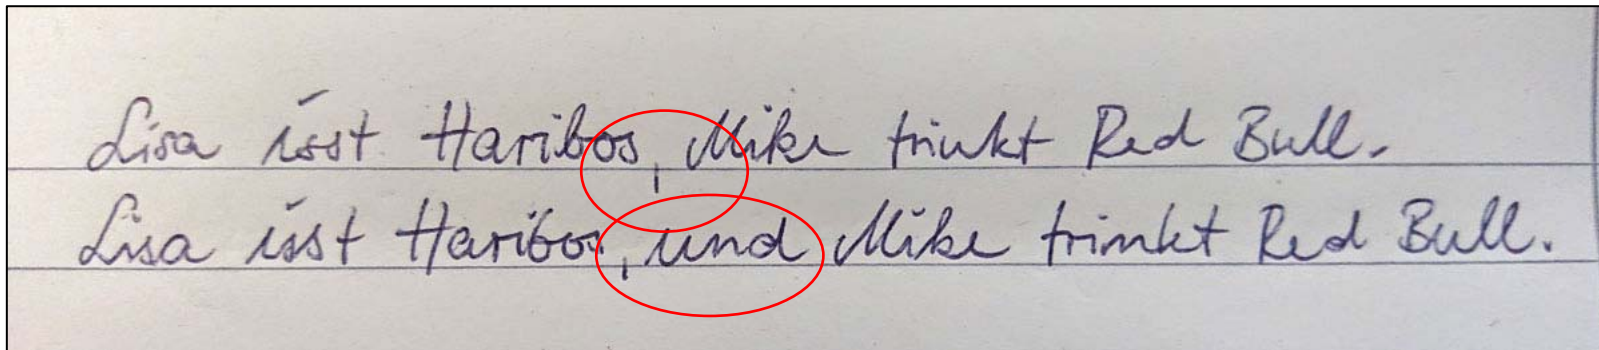 Lisa isst Haribos, Mike trinkt Red Bull.
Lisa isst Haribos, und Mike trinkt Red Bull.